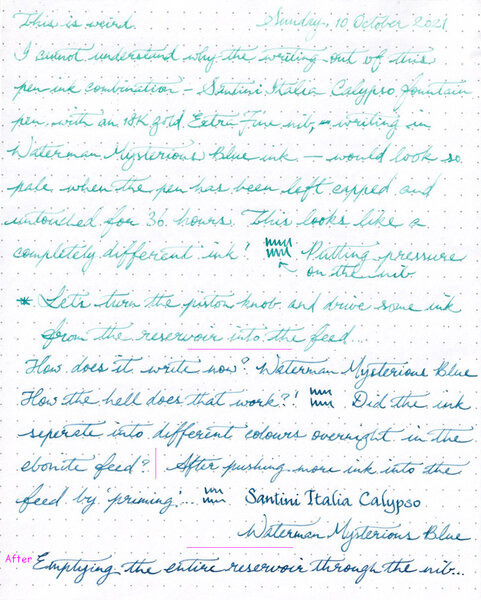 This is weird. Sunday, 10 October 2021
I cannot understand why the writing out of this
pen-ink combination – Santini Italia Calypso fountain
pen with an 18K gold Extra Fine nib, – writing in
Waterman Mysterious Blue ink – would look so
pale when the pen has been left capped and
untouched for 36 hours. This looks like a
completely different ink! Putting pressure
on the nib
* Let's turn the piston knob and drive some ink
from the reservoir into the feed...
How does it write now? Waterman Mysterious Blue
How the hell does that work?! Did the ink
seperate into different colours overnight in the
ebonite feed? After pushing more ink into the
feed by 'priming'... Santini Italia Calypso
Waterman Mysterious Blue
After Emptying the entire reservoir through the nib...